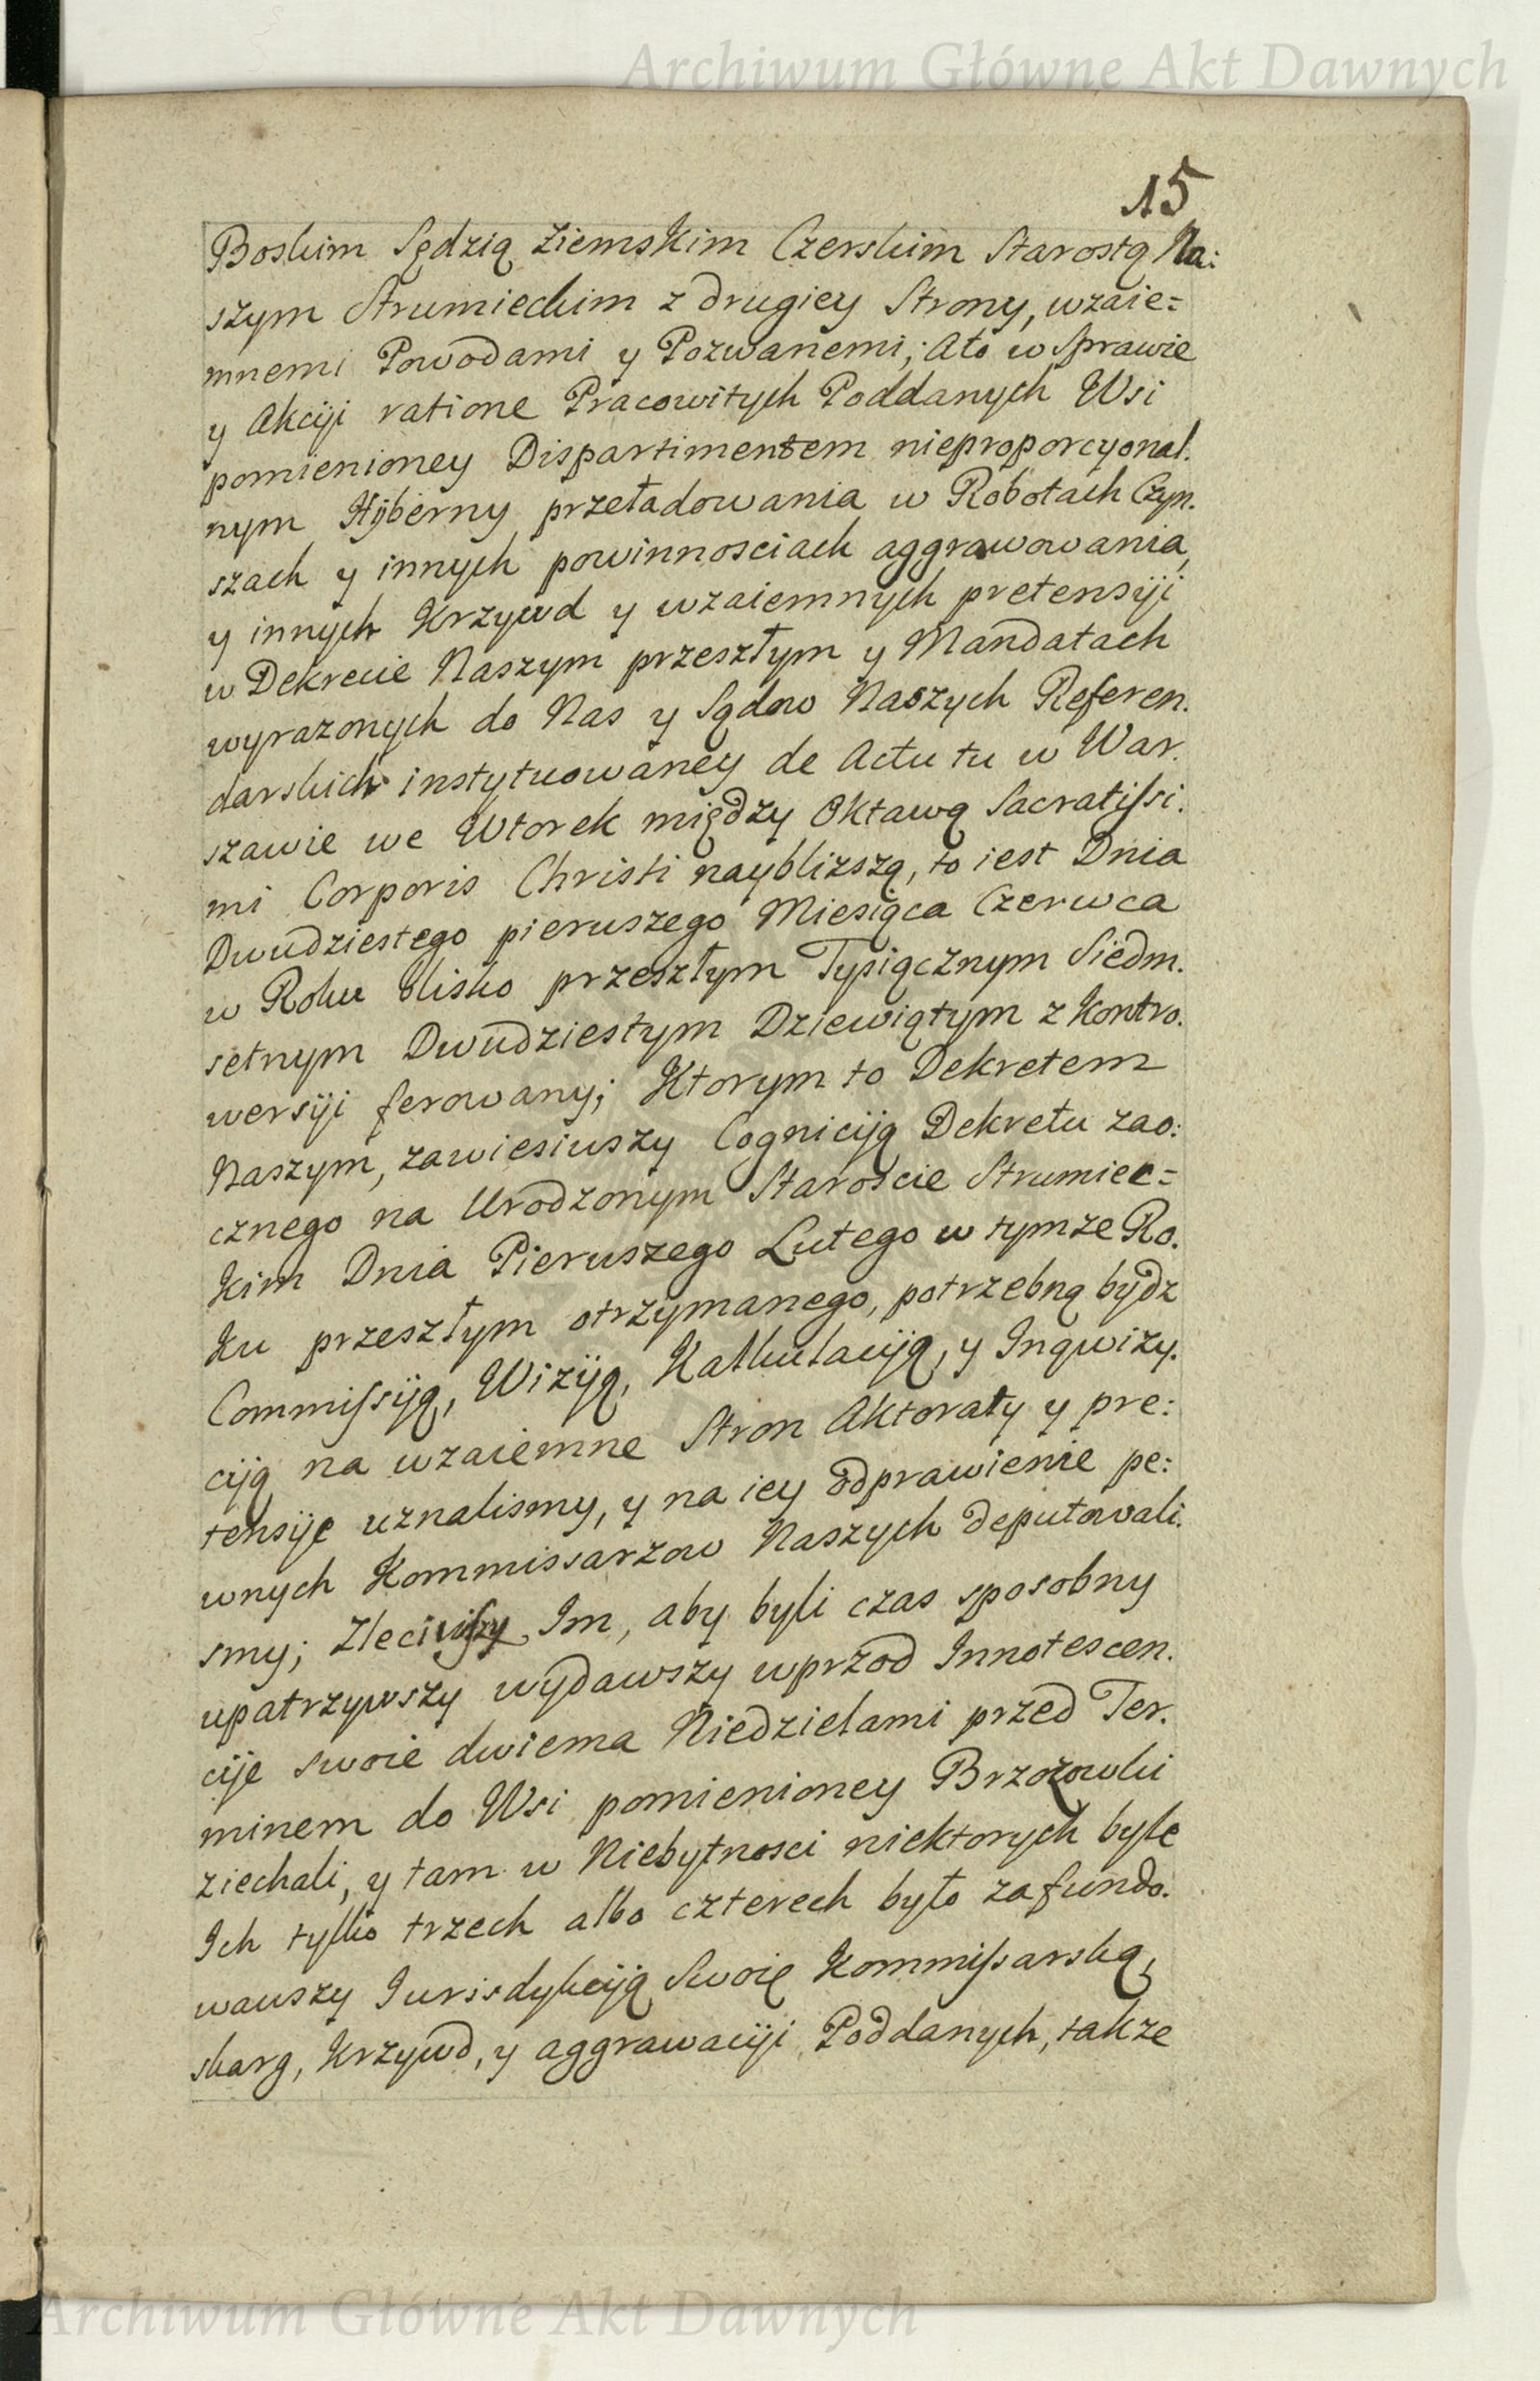 Archiwum Główne Akt Dawnych
15
Boskim Sędzią Ziemskim Czerskim Starostą Na:
szym Strumieckim z drugiey Strony, wzaie=
mnemi Powodami y Pozwanemi; Ato w Sprawie
y Akcÿi ratione Pracowitych Poddanych Wsi
pomienioney Dispartimentem nieproporcyonal.
nym Hÿberny przeładowania w Robotach Czyn.
szach y innych powinnosciach aggrawowania,
y innych Krzywd y wzaiemnych pretensÿi
w Dekrecie Naszym przeszłym y Mandatach
wyrazonych do Nas y Sądow Naszych Referen.
darskich instytuowaney de Actu tu w War.
szawie we Wtorek między Oktawą Sacratissi.
mi Corporis Christi nayblizszą, to iest Dnia
Dwudziestego pierwszego Miesiąca Czerwca
w Roku blisko przeszłym Tysiącznym Siedm.
setnym Dwudziestym Dziewiątym z Kontro.
wersÿi ferowany; Ktorym to Dekretem
Naszym, zawiesiwszy Cognicÿą Dekretu zao:
cznego na Urodzonym Staroscie Strumiec=
kim Dnia Pierwszego Lutego w tymze Ro.
ku przeszłym otrzymanego, potrzebną bydz
Commissÿą, Wizÿą, Kalkulacÿą, y Inqwizy.
cÿą na wzaiemne Stron Aktoraty y pre:
tensÿe uznalismy, y na iey odprawienie pe:
wnych Kommissarzow Naszych deputowali.
smy; Zleciwszy Im, aby byli czas sposobny
upatrzywszy wydawszy wprzod Innotescen.
cÿe swoie dwiema Niedzielami przed Ter.
minem do Wsi pomienioney Brzozowki
ziechali, y tam w Niebytnosci niektorych byle
Ich tylko trzech albo czterech było zafundo.
wawszy Iurisdykcÿą Swoię Kommissarską,
skarg, Krzywd, y aggrawacÿi Poddanych, takze
Archiwum Główne Akt Dawnych